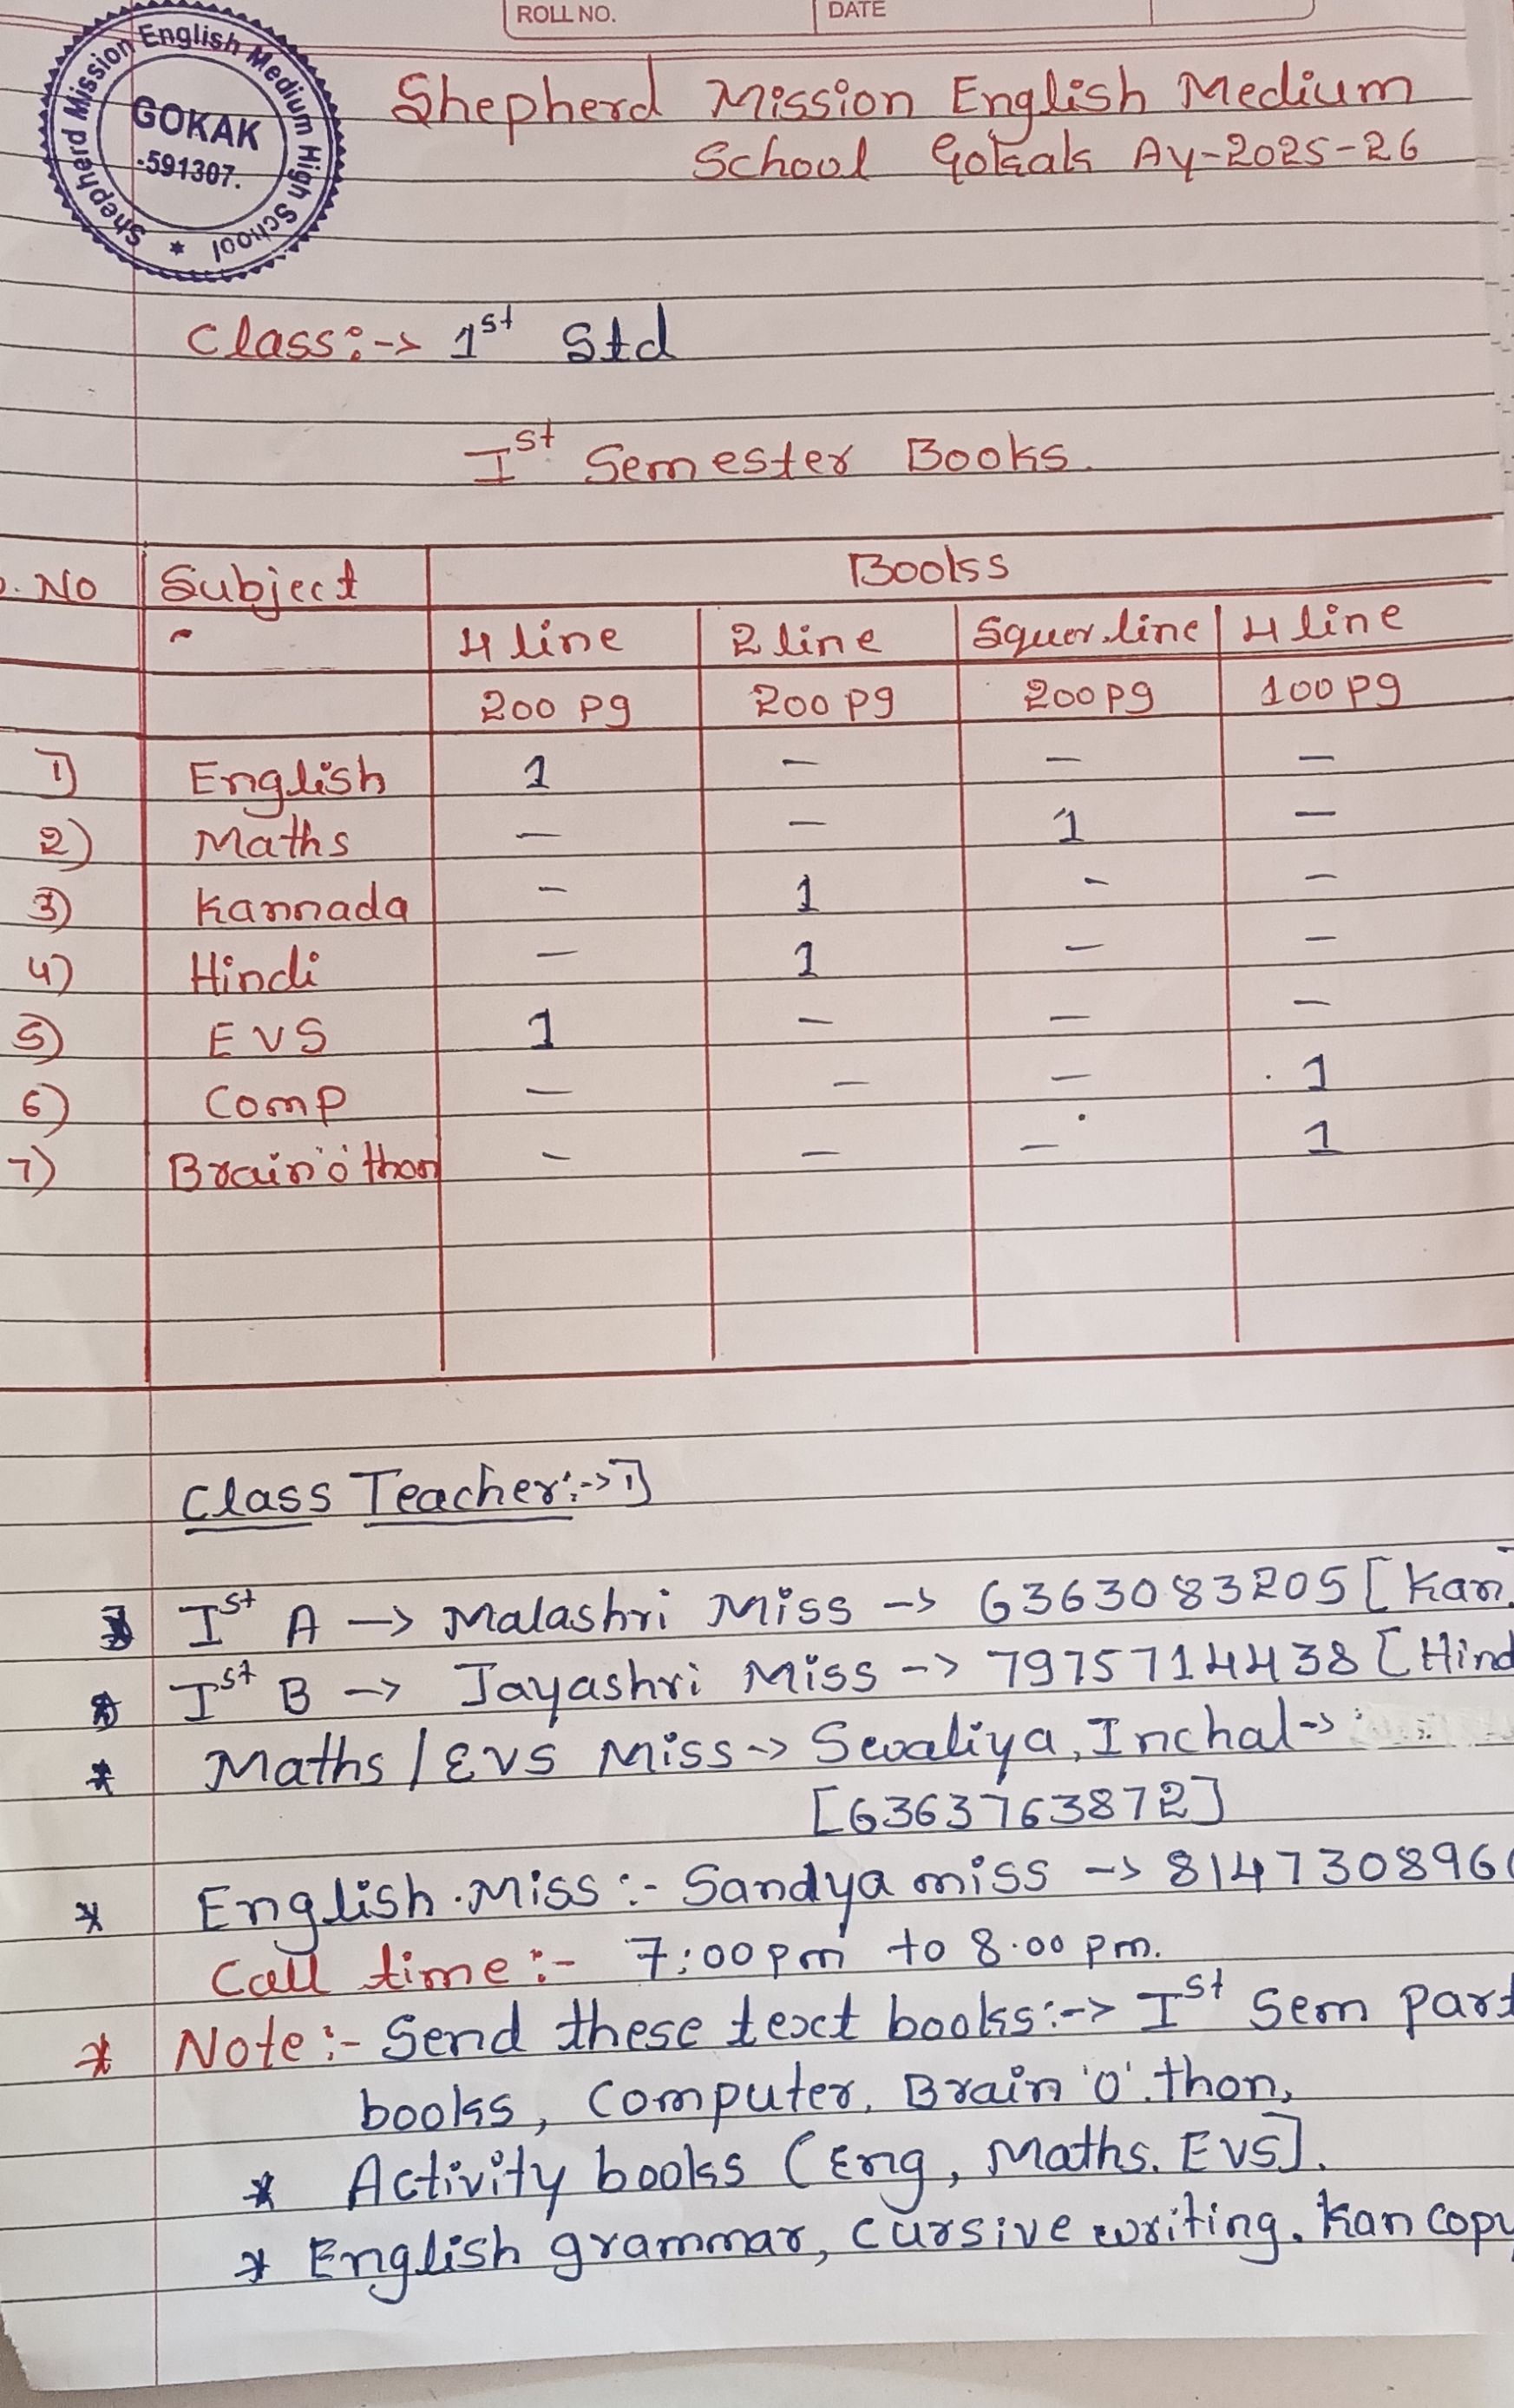 ROLL NO. DATE
Shepherd Mission English Medium High School
GOKAK
-591307.
Shepherd Mission English Medium
School Gokak AY-2025-26
Class:-> 1st Std
Ist Semester Books.
. No Subject Books
4 line 2 line Squer.line 4 line
200 pg 200 pg 200 pg 100 pg
1) English 1 - - -
2) Maths - - 1 -
3) Kannada - 1 - -
4) Hindi - 1 - -
5) EVS 1 - - -
6) Comp - - - 1
7) Brain 'o' thon - - - 1
Class Teacher:->
* Ist A -> Malashri Miss -> 6363083205 [Kan]
* Ist B -> Jayashri Miss -> 7975714438 [Hind
* Maths / EVS Miss -> Sevaliya, Inchal ->
[6363763872]
* English. Miss :- Sandya miss -> 814730896
Call time :- 7:00 pm to 8.00 pm.
* Note :- Send these text books :-> Ist Sem part
books, Computer, Brain 'o'. thon,
* Activity books (Eng, Maths. EVS].
* English grammar, cursive writing. Kan copy